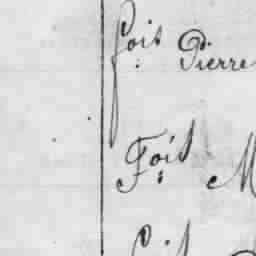 fois Pierre
Foit M